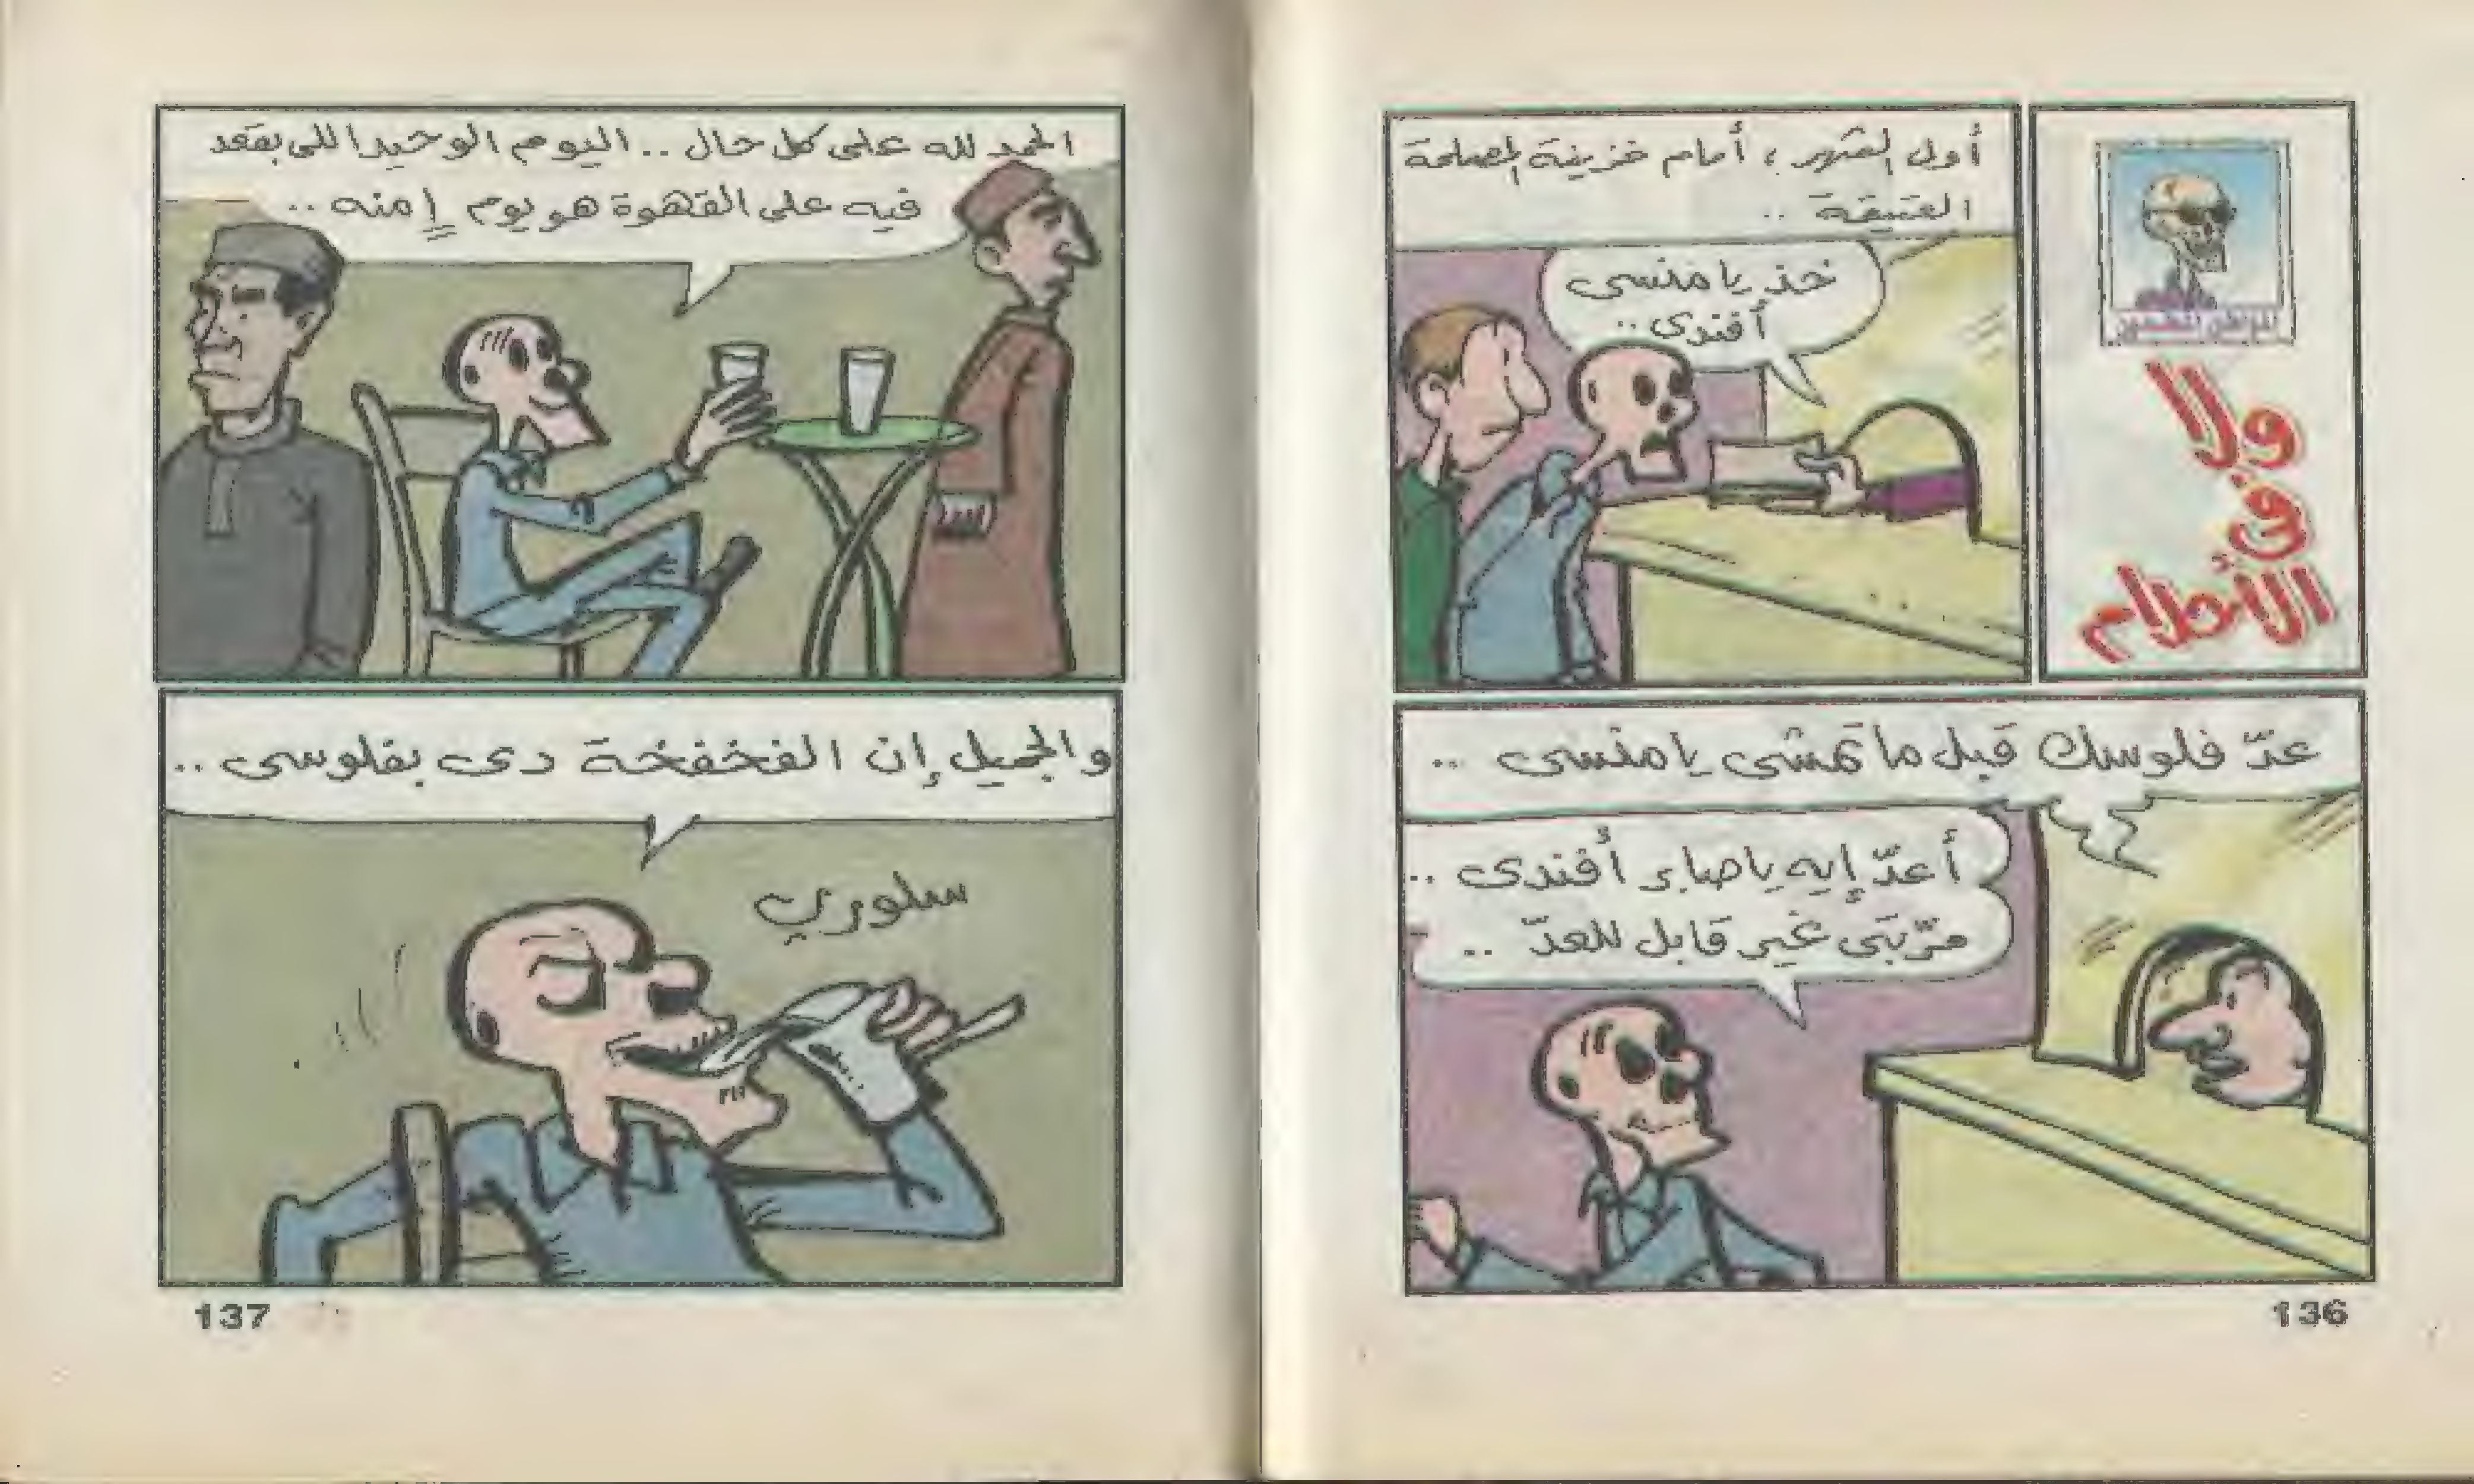 ولا
فى
الأحلام
أول الشهر، أمام خزينة المصلحة
العتيقة ..
خذ يا منسى
أفندى ..
عدّ فلوسك قبل ما تمشى يا منسى ..
أعدّ إيه يا صابر أفندى ..
مرّتبى غير قابل للعدّ ..
136
الحمد لله على كل حال .. اليوم الوحيد اللى بقعد
فيه على القهوة هو يوم إمنه ..
والجميل إن الفخفخة دى بفلوسى ..
سلورب
137